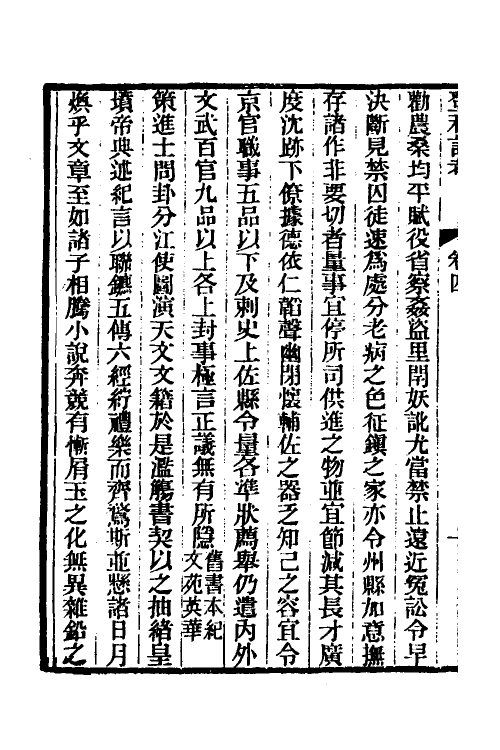 登科記考 卷四
勸農桑均平賦役省察姦盜里閈妖訛尤當禁止遠近冤訟令早
決斷見禁囚徒速爲處分老病之色征鎭之家亦令州縣加意撫
存諸作非要切者量事宜停所司供進之物並宜節減其長才廣
度沈跡下僚據德依仁韜聲幽閉懷輔佐之器乏知己之容宜令
京官職事五品以下及刺史上佐縣令量各準狀薦舉仍遣內外
文武百官九品以上各上封事極言正議無有所隱舊書本紀文苑英華
策進士問卦分江使圖演天文文籍於是濫觴書契以之抽緒皇
墳帝典述紀言以聯鑣五傳六經銜禮樂而齊鶩斯並懸諸日月
煥乎文章至如諸子相騰小說奔競有慚屑玉之化無異雜鉛之